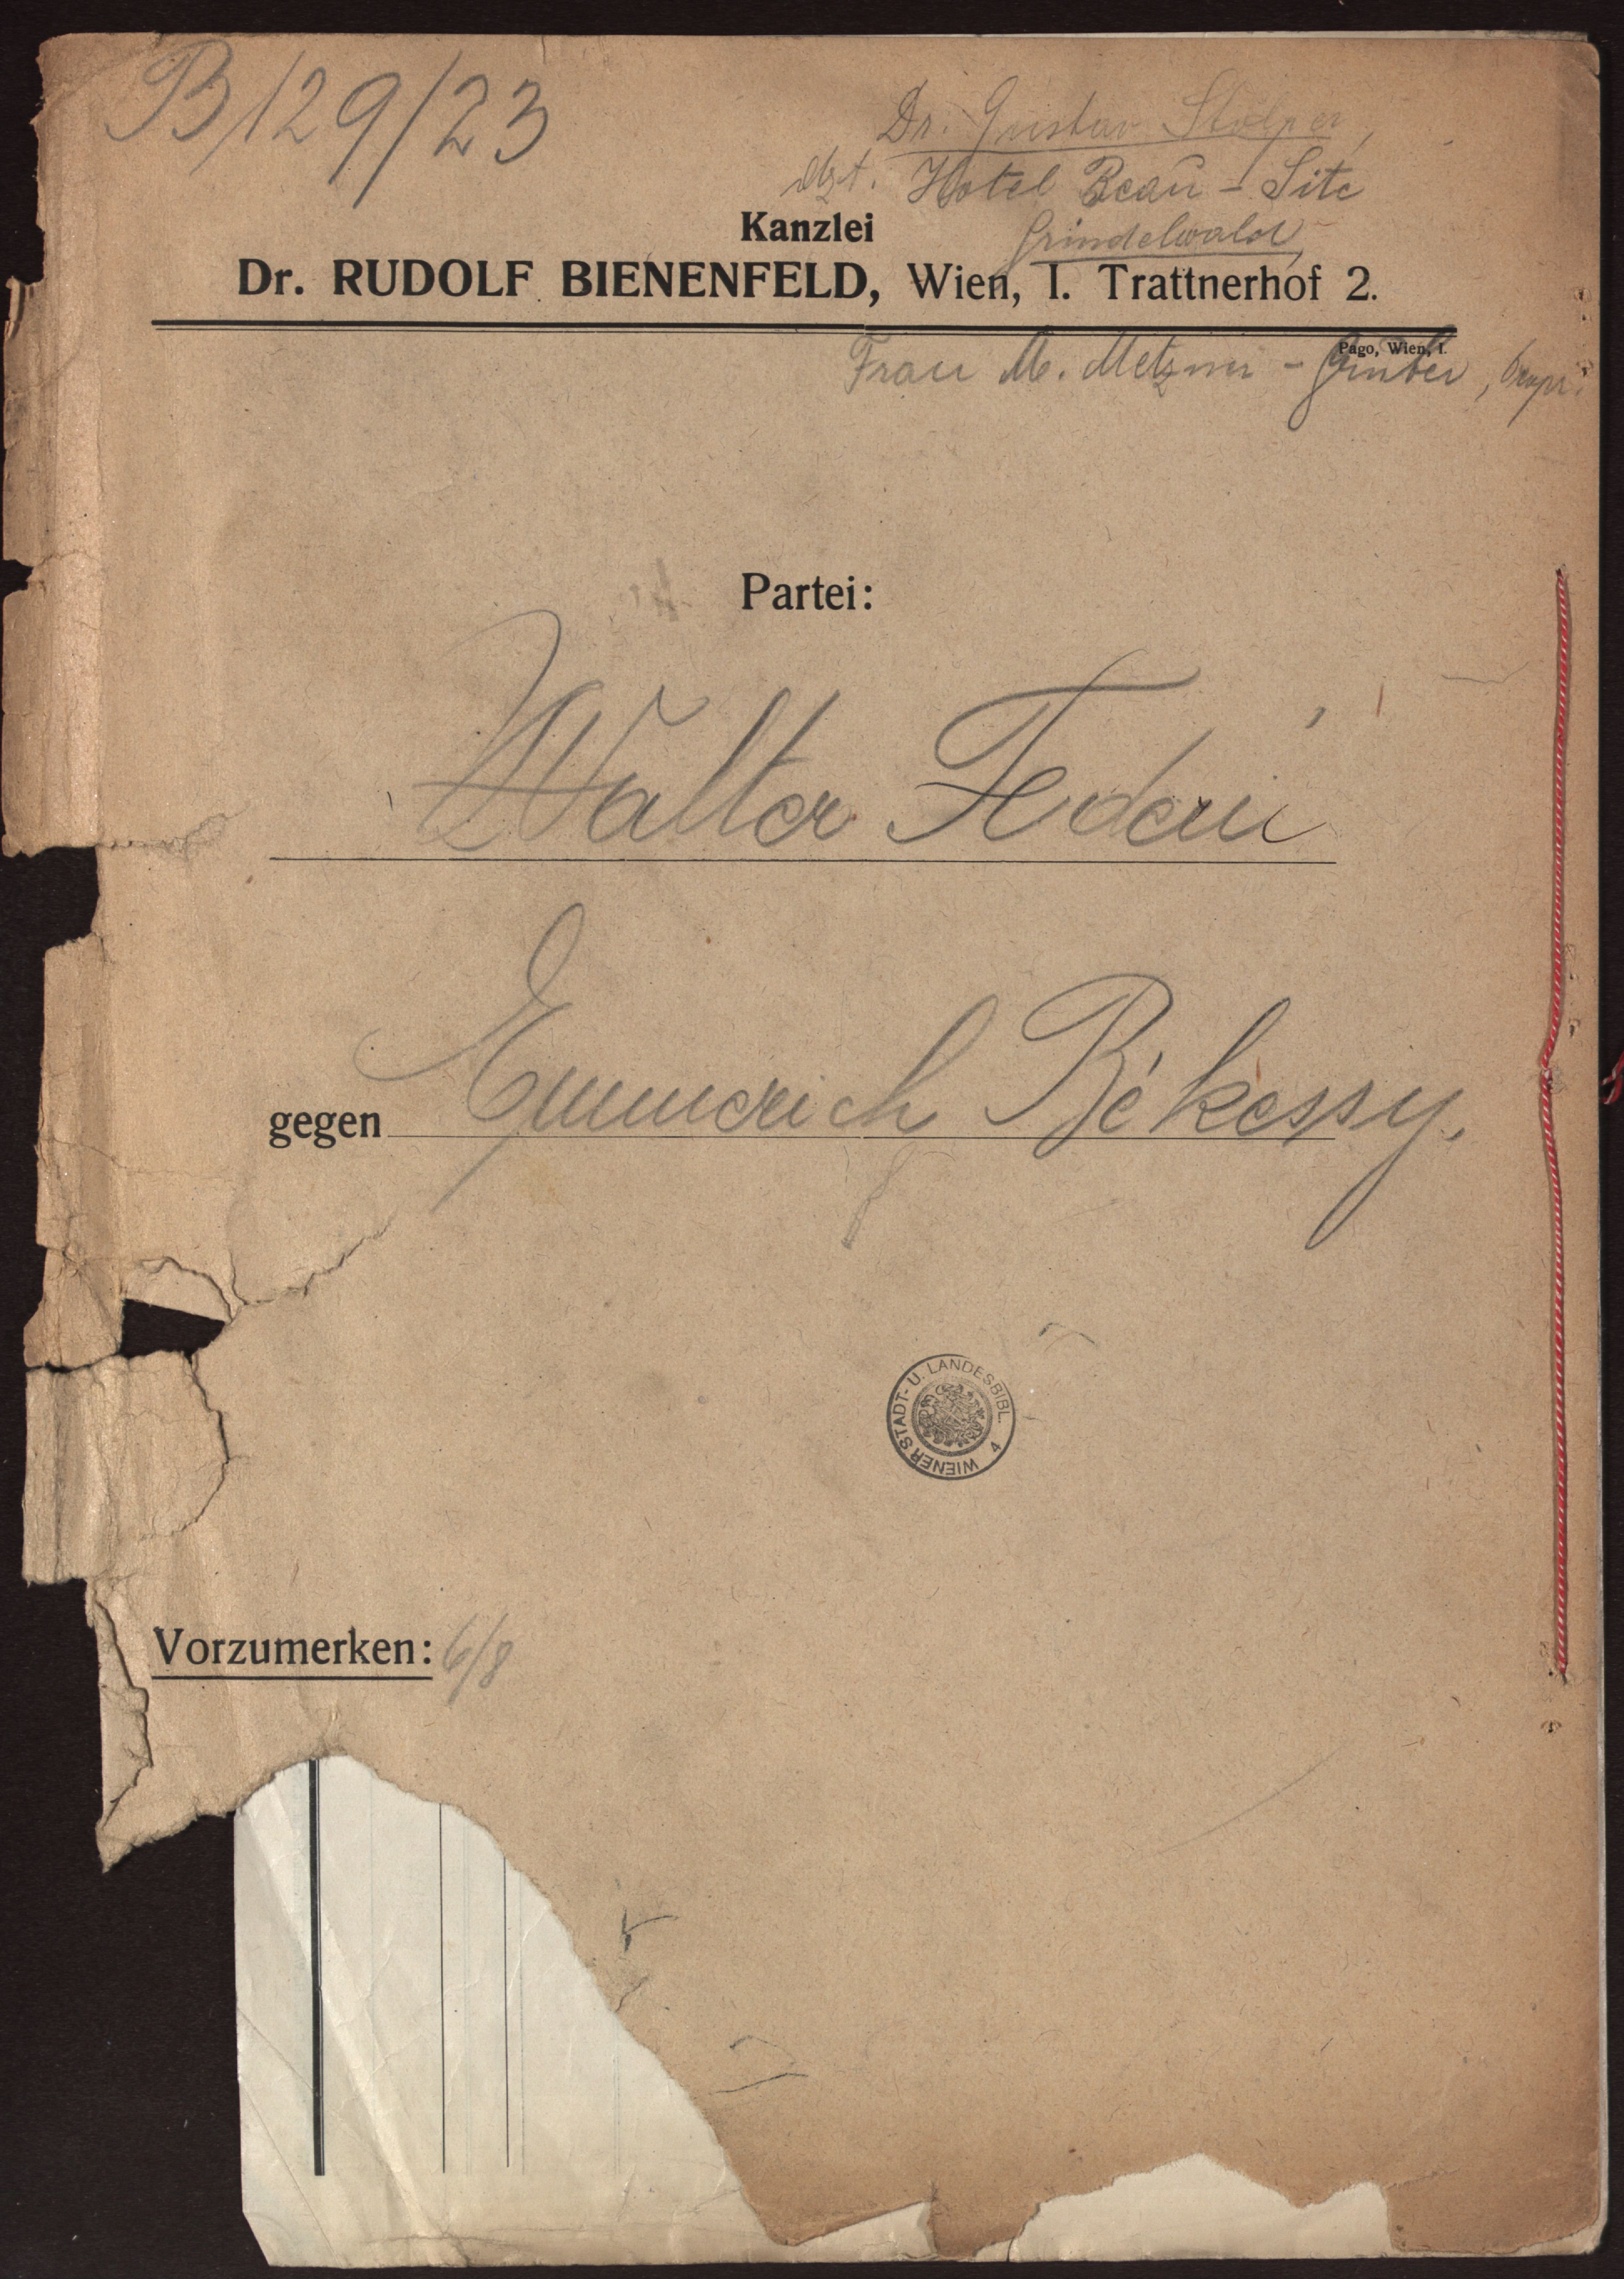 B/129/23
Dr. Gustav Stolper,
dzt. Hotel Beau-Site
Grindelwald
Kanzlei
Dr. RUDOLF BIENENFELD, Wien, I. Trattnerhof 2.
Pago, Wien, I.
Frau M. Metzner -
Partei:
Walter Federn
gegen Emmerich Békessy.
WIENER STADT- U. LANDESBIBL. 4
Vorzumerken: 6/8